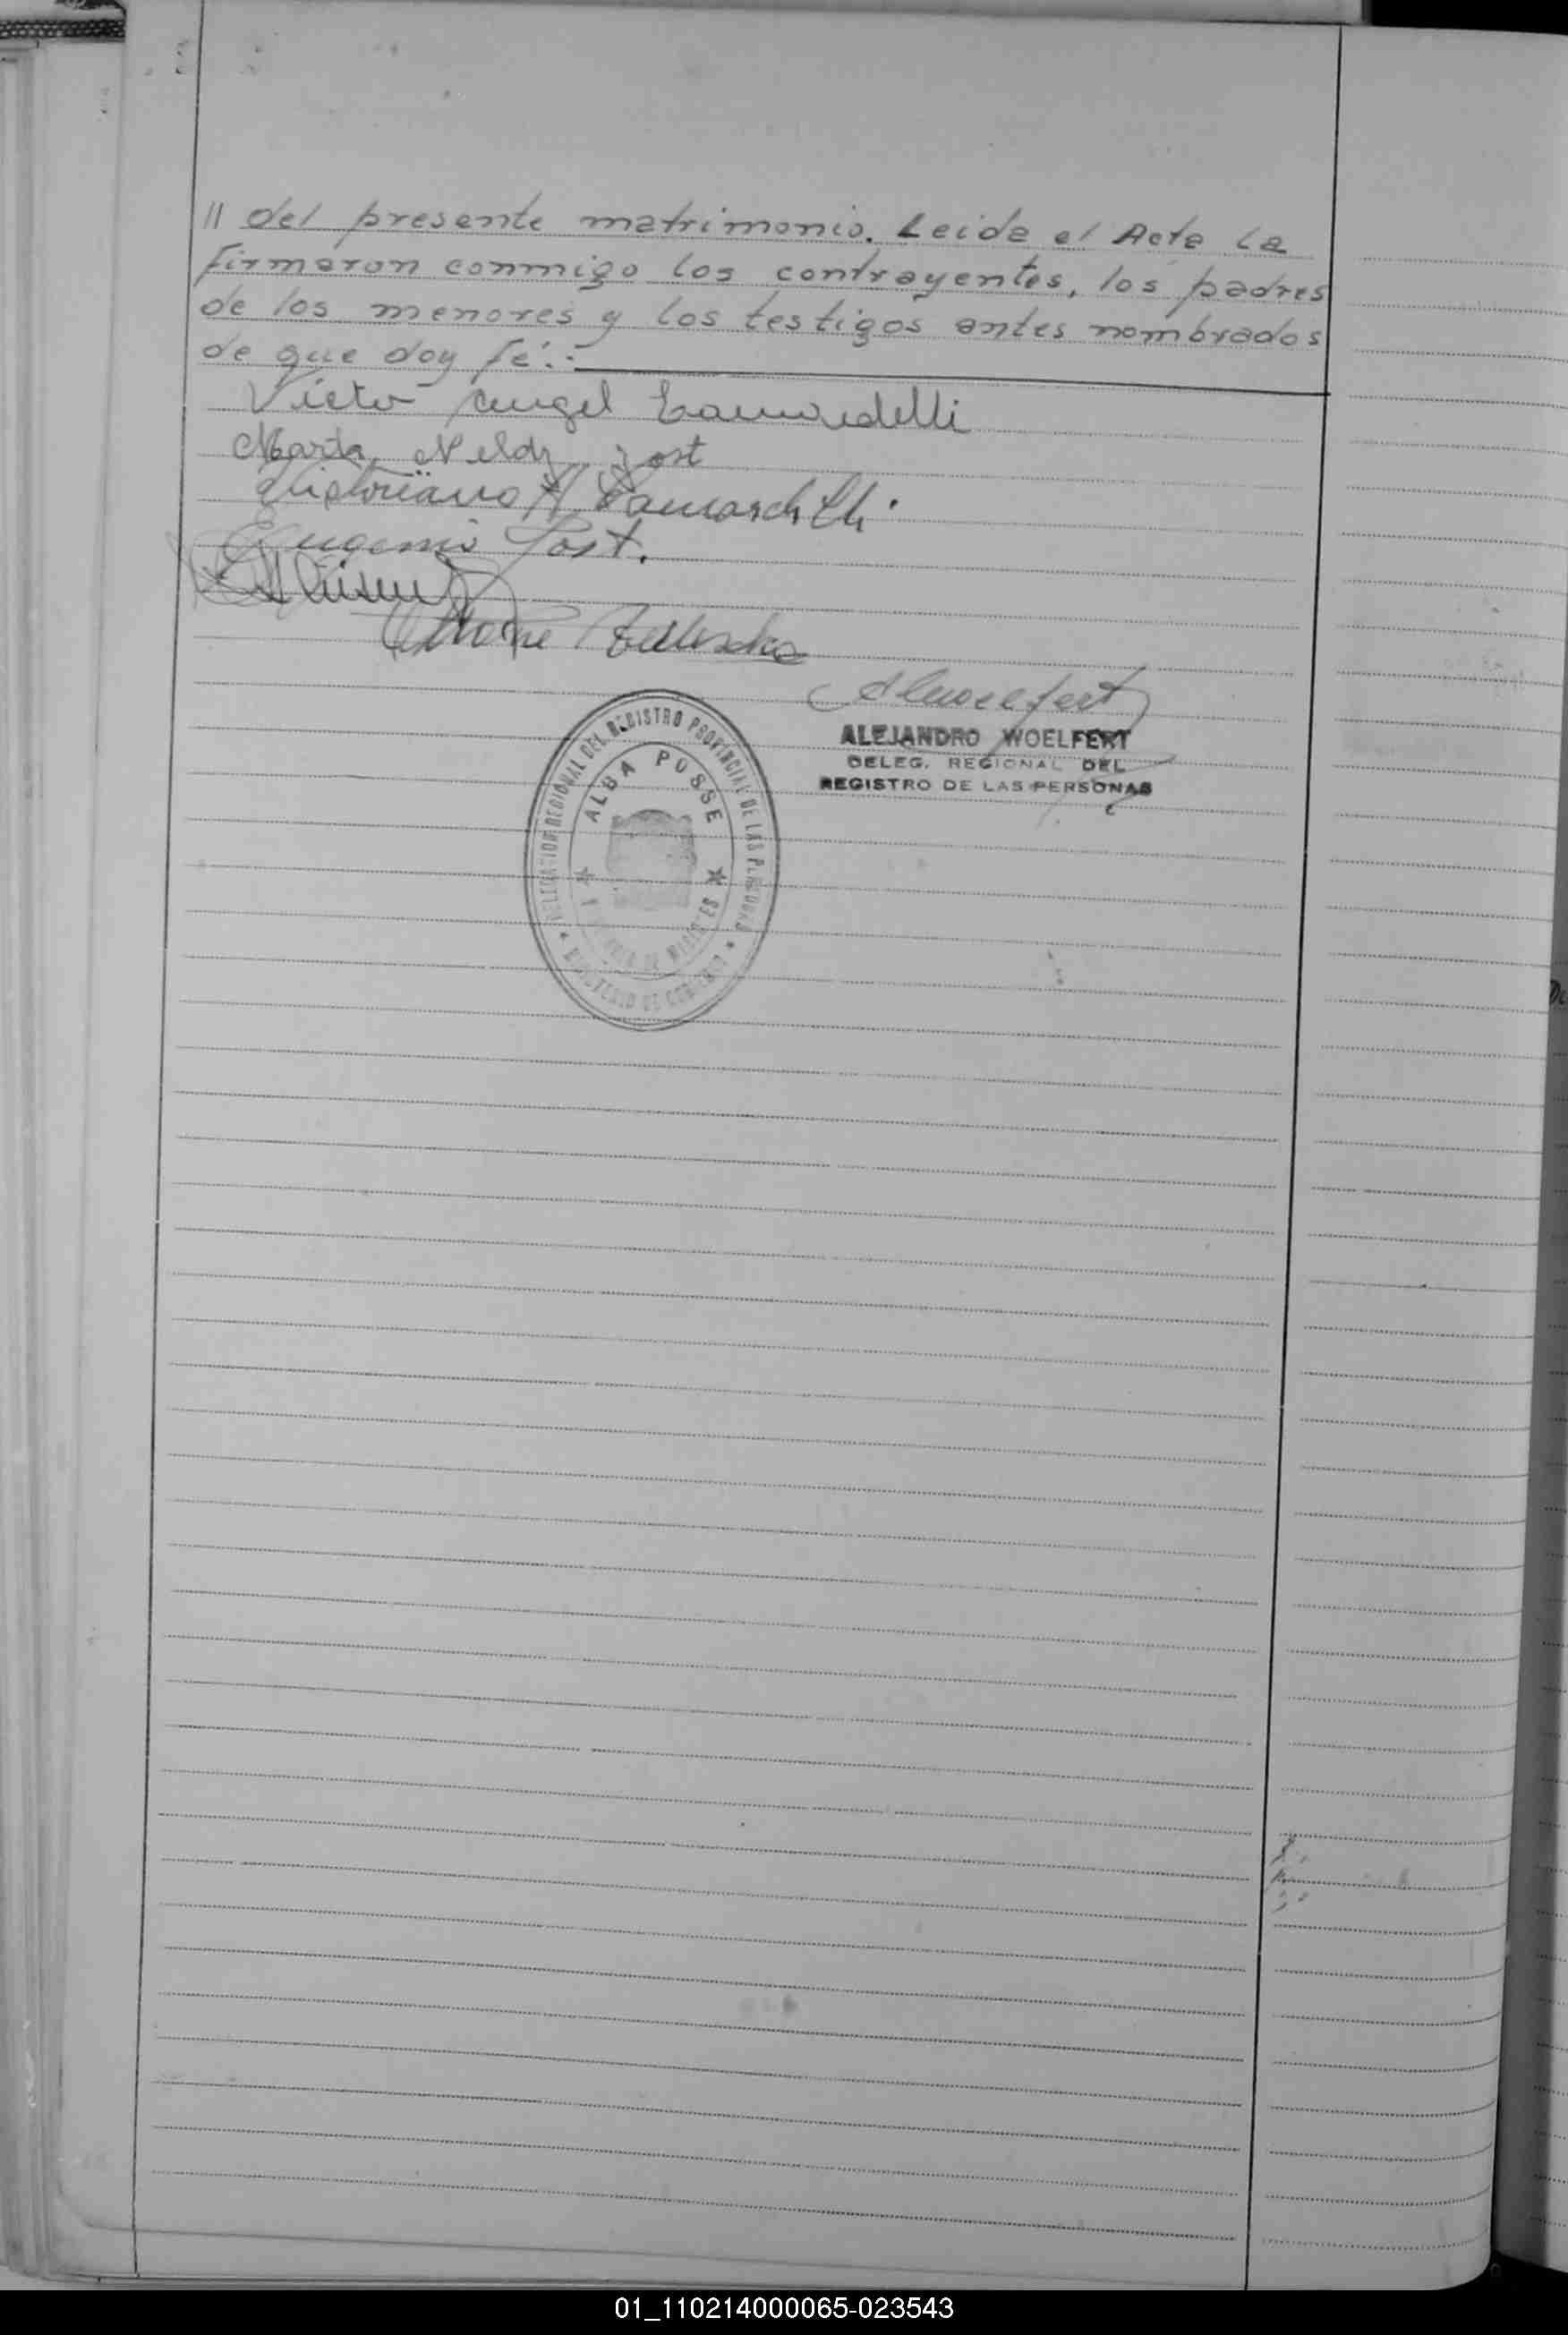 // del presente matrimonio. Leida el Acta la
firmaron conmigo los contrayentes, los padres
de los menores y los testigos antes nombrados
de que doy fé.-
Victor Angel
Marta Neldy Jost
Eugenio Jost.
ALEJANDRO WOELFERT
DELEG. REGIONAL DEL
REGISTRO DE LAS PERSONAS
DELEGACION REGIONAL DEL REGISTRO PROVINCIAL DE LAS PERSONAS
ALBA POSSE
DE MISIONES
MINISTERIO DE GOBIERNO
01_110214000065-023543